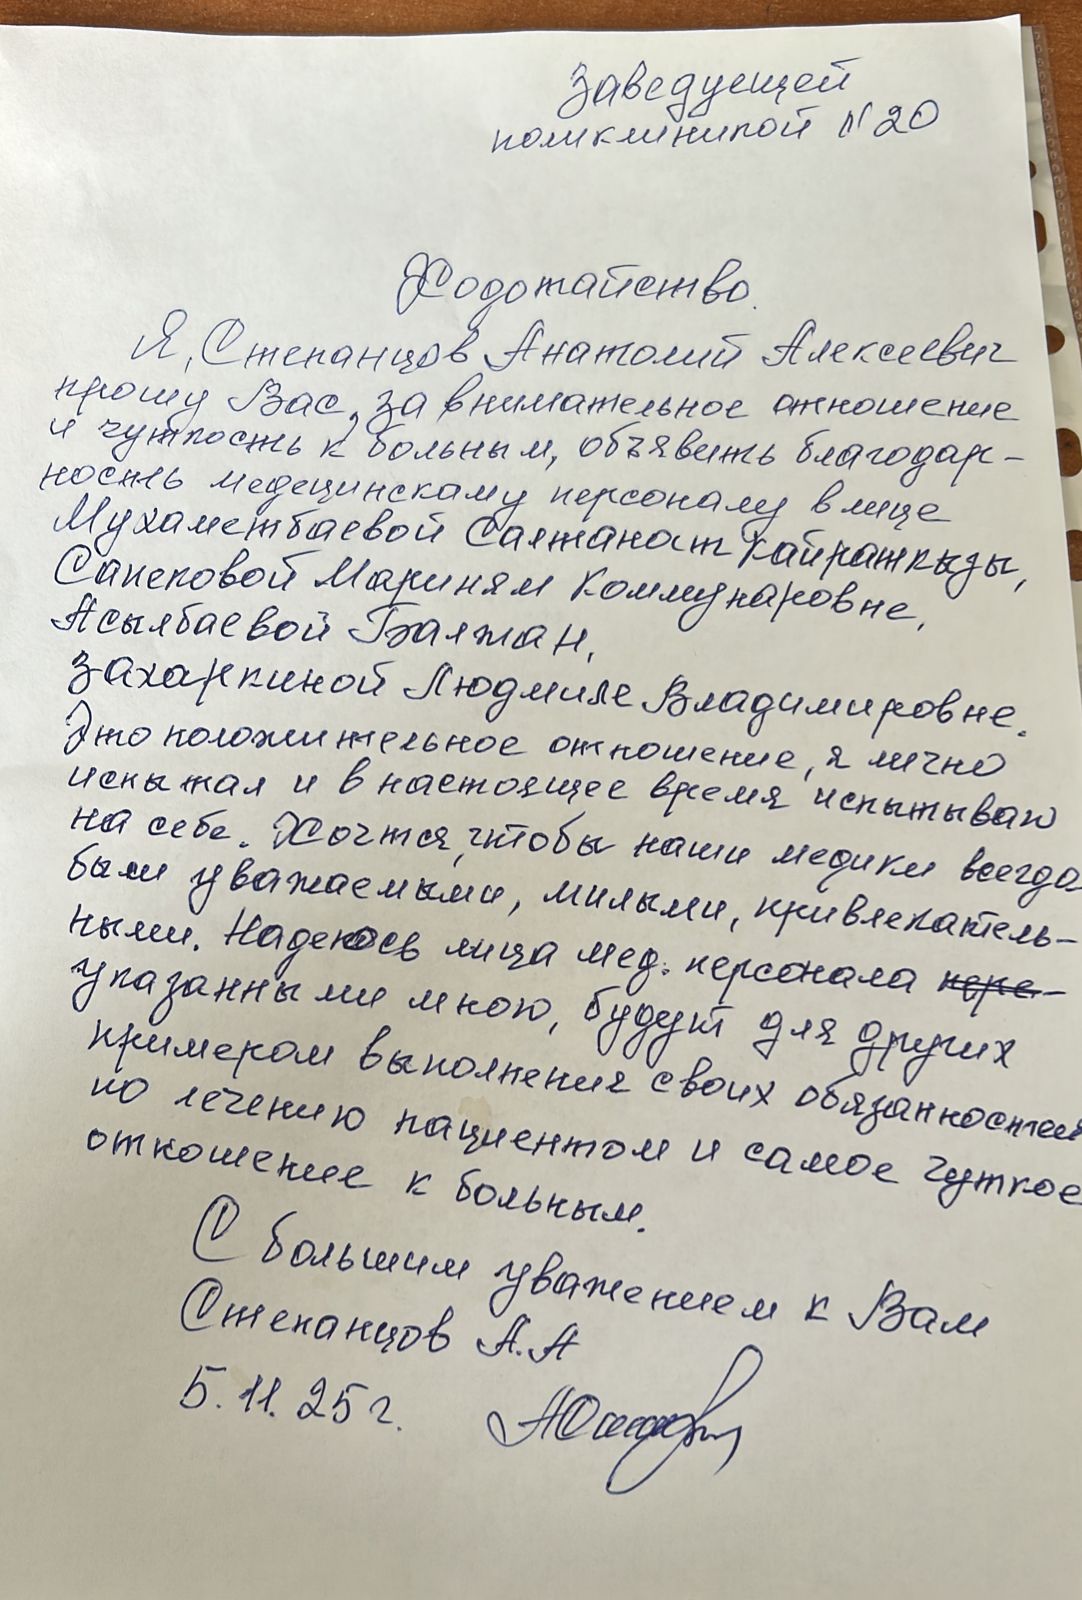 Заведующей
поликлиникой N 20
Ходотайство.
Я, Степанцов Анатолий Алексеевич
прошу Вас, за внимательное отношение
и чуткость к больным, объявить благодар-
ность медецинскаму персоналу в лице
Мухаметбаевой Салтанат Кайраткызы,
Сапековой Мариням Коммунаровне,
Асылбаевой Балжан,
Захаркиной Людмиле Владимировне.
Это положительное отношение, я лично
испытал и в настоящее время испытываю
на себе. Хочтся, чтобы наши медики всегда
были уважаемыми, милыми, привлекатель-
ными. Надеюсь лица мед. персонала пере-
указанными мною, будут для других
примером выполнения своих обязанностей
по лечению пациентом и самое чуткое
отношение к больным.
С большим уважением к Вам
Степанцов А.А
5.11.25 г.